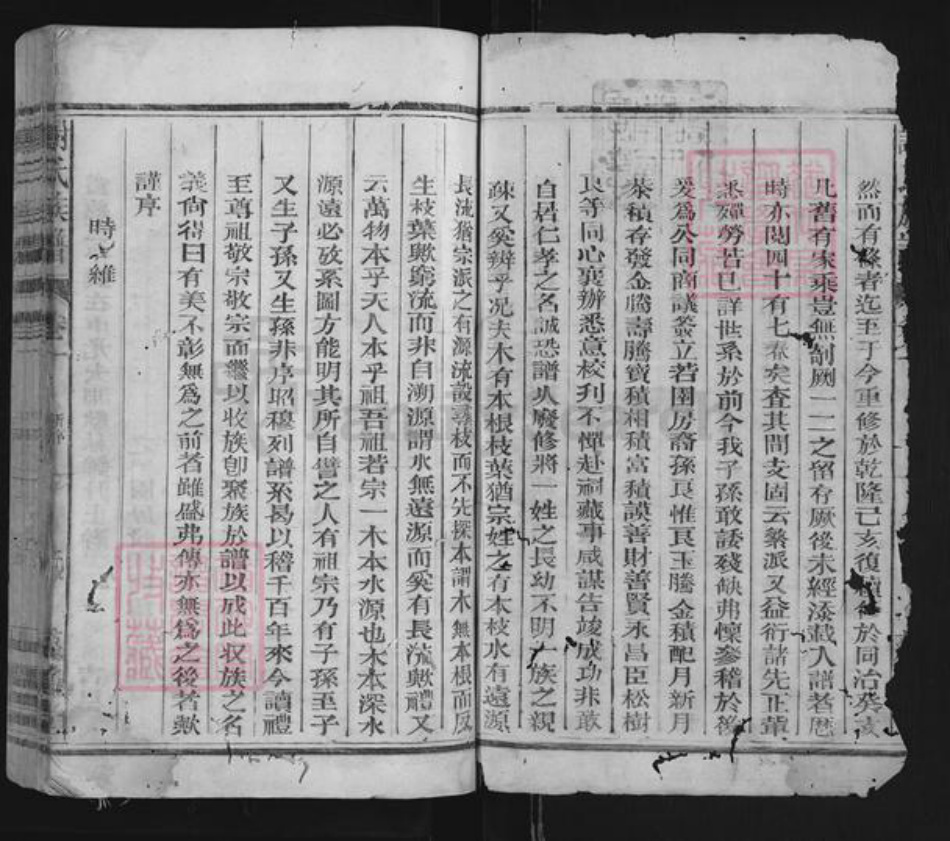 然而有修者迄至于今重修於乾隆己亥復續修於同治癸亥
凡舊有家乘豈無剞劂一一之留存厥後未經添載人譜者歴
時亦閱四十有七春矣查其間支固云繁派又益衍諸先正輩
悉殫勞若已詳世系於前今我子孫敢諉殘缺弗懷參稽於後
爰爲公同商議簽立若團房裔孫良惟良玉騰金積配月新月
恭積存發金騰壽騰寶積相積富積謨善財善賢永昌臣松樹
良等同心襄辦悉意校刋不憚赴祠蕆事咸謀告竣成功非敢
自居仁孝之名誠恐譜乆廢修將一姓之長幼不明一族之親
疎又奚辨乎况夫木有本根枝葉猶宗姓之有本枝水有遠源
長流猶宗派之有源流設尋枝而不先探本謂木無本根而反
生枝葉歟窮流而非自溯源謂水無遠源而奚有長流歟禮又
云萬物本乎天人本乎祖吾祖若宗一木本水源也木本深水
源遠必攷系圖方能明其所自譬之人有祖宗乃有子孫至子
又生子孫又生孫非序昭穆列譜系曷以稽千百年來今讀禮
至尊祖敬宗敬宗而繼以收族卽聚族於譜以成此収族之名
義尙得曰有美不彰無爲之前者雖盛弗傳亦無爲之後者歟
謹序
時維